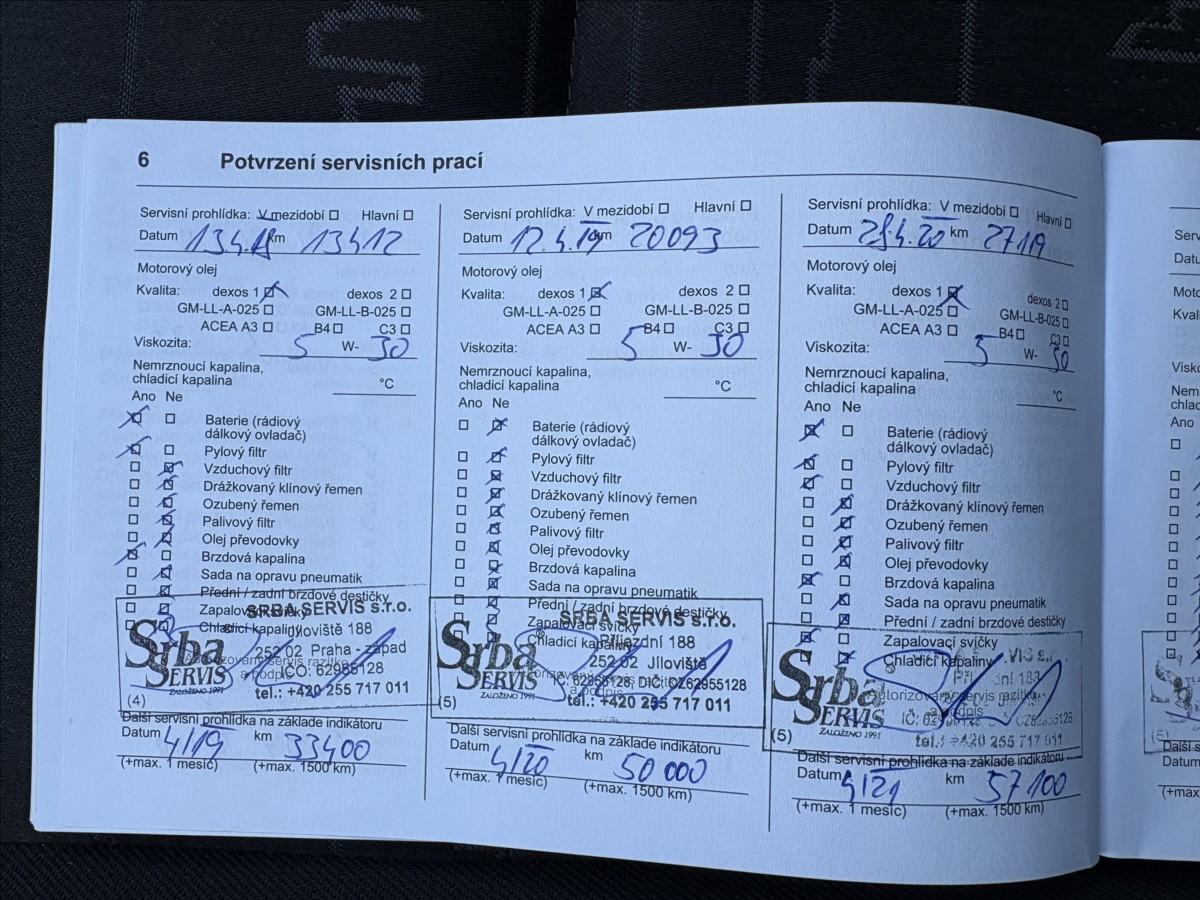 6 Potvrzení servisních prací
Servisní prohlídka: V mezidobí Hlavní
Datum 13.4.18 km 13412
Motorový olej
Kvalita: dexos 1 dexos 2
GM-LL-A-025 GM-LL-B-025
ACEA A3 B4 C3
Viskozita: 5 W- 30
Nemrznoucí kapalina,
chladicí kapalina °C
Ano Ne
Baterie (rádiový
dálkový ovladač)
Pylový filtr
Vzduchový filtr
Drážkovaný klínový řemen
Ozubený řemen
Palivový filtr
Olej převodovky
Brzdová kapalina
Sada na opravu pneumatik
Přední / zadní brzdové destičky
Zapalovací svíčky
Chladicí kapaliny
SRBA SERVIS s.r.o.
Jíloviště 188
252 02 Praha - západ
IČO: 62955128
tel.: +420 255 717 011
Srba
SERVIS
ZALOŽENO 1991
Autorizovaný servis razítko
a podpis
(4)
Další servisní prohlídka na základě indikátoru
Datum 4/19 km 33400
(+max. 1 měsíc) (+max. 1500 km)
Servisní prohlídka: V mezidobí Hlavní
Datum 12.4.19 km 20093
Motorový olej
Kvalita: dexos 1 dexos 2
GM-LL-A-025 GM-LL-B-025
ACEA A3 B4 C3
Viskozita: 5 W- 30
Nemrznoucí kapalina,
chladicí kapalina °C
Ano Ne
Baterie (rádiový
dálkový ovladač)
Pylový filtr
Vzduchový filtr
Drážkovaný klínový řemen
Ozubený řemen
Palivový filtr
Olej převodovky
Brzdová kapalina
Sada na opravu pneumatik
Přední / zadní brzdové destičky
Zapalovací svíčky
Chladicí kapaliny
SRBA SERVIS s.r.o.
Příjezdní 188
252 02 Jíloviště
IČ: 62955128, DIČ: CZ62955128
tel.: +420 255 717 011
Srba
SERVIS
ZALOŽENO 1991
a podpis
(5)
Další servisní prohlídka na základě indikátoru
Datum 4/20 km 50 000
(+max. 1 měsíc) (+max. 1500 km)
Servisní prohlídka: V mezidobí Hlavní
Datum 28.4.20 km
Motorový olej
Kvalita: dexos 1 dexos 2
GM-LL-A-025 GM-LL-B-025
ACEA A3 B4 C3
Viskozita: 5 W- 30
Nemrznoucí kapalina,
chladicí kapalina °C
Ano Ne
Baterie (rádiový
dálkový ovladač)
Pylový filtr
Vzduchový filtr
Drážkovaný klínový řemen
Ozubený řemen
Palivový filtr
Olej převodovky
Brzdová kapalina
Sada na opravu pneumatik
Přední / zadní brzdové destičky
Zapalovací svíčky
Chladicí kapaliny
Srba
SERVIS
ZALOŽENO 1991
Autorizovaný servis razítko
a podpis
tel.: +420 255 717 011
(5)
Další servisní prohlídka na základě indikátoru
Datum 4/21 km 57 100
(+max. 1 měsíc) (+max. 1500 km)
Ano
Datum